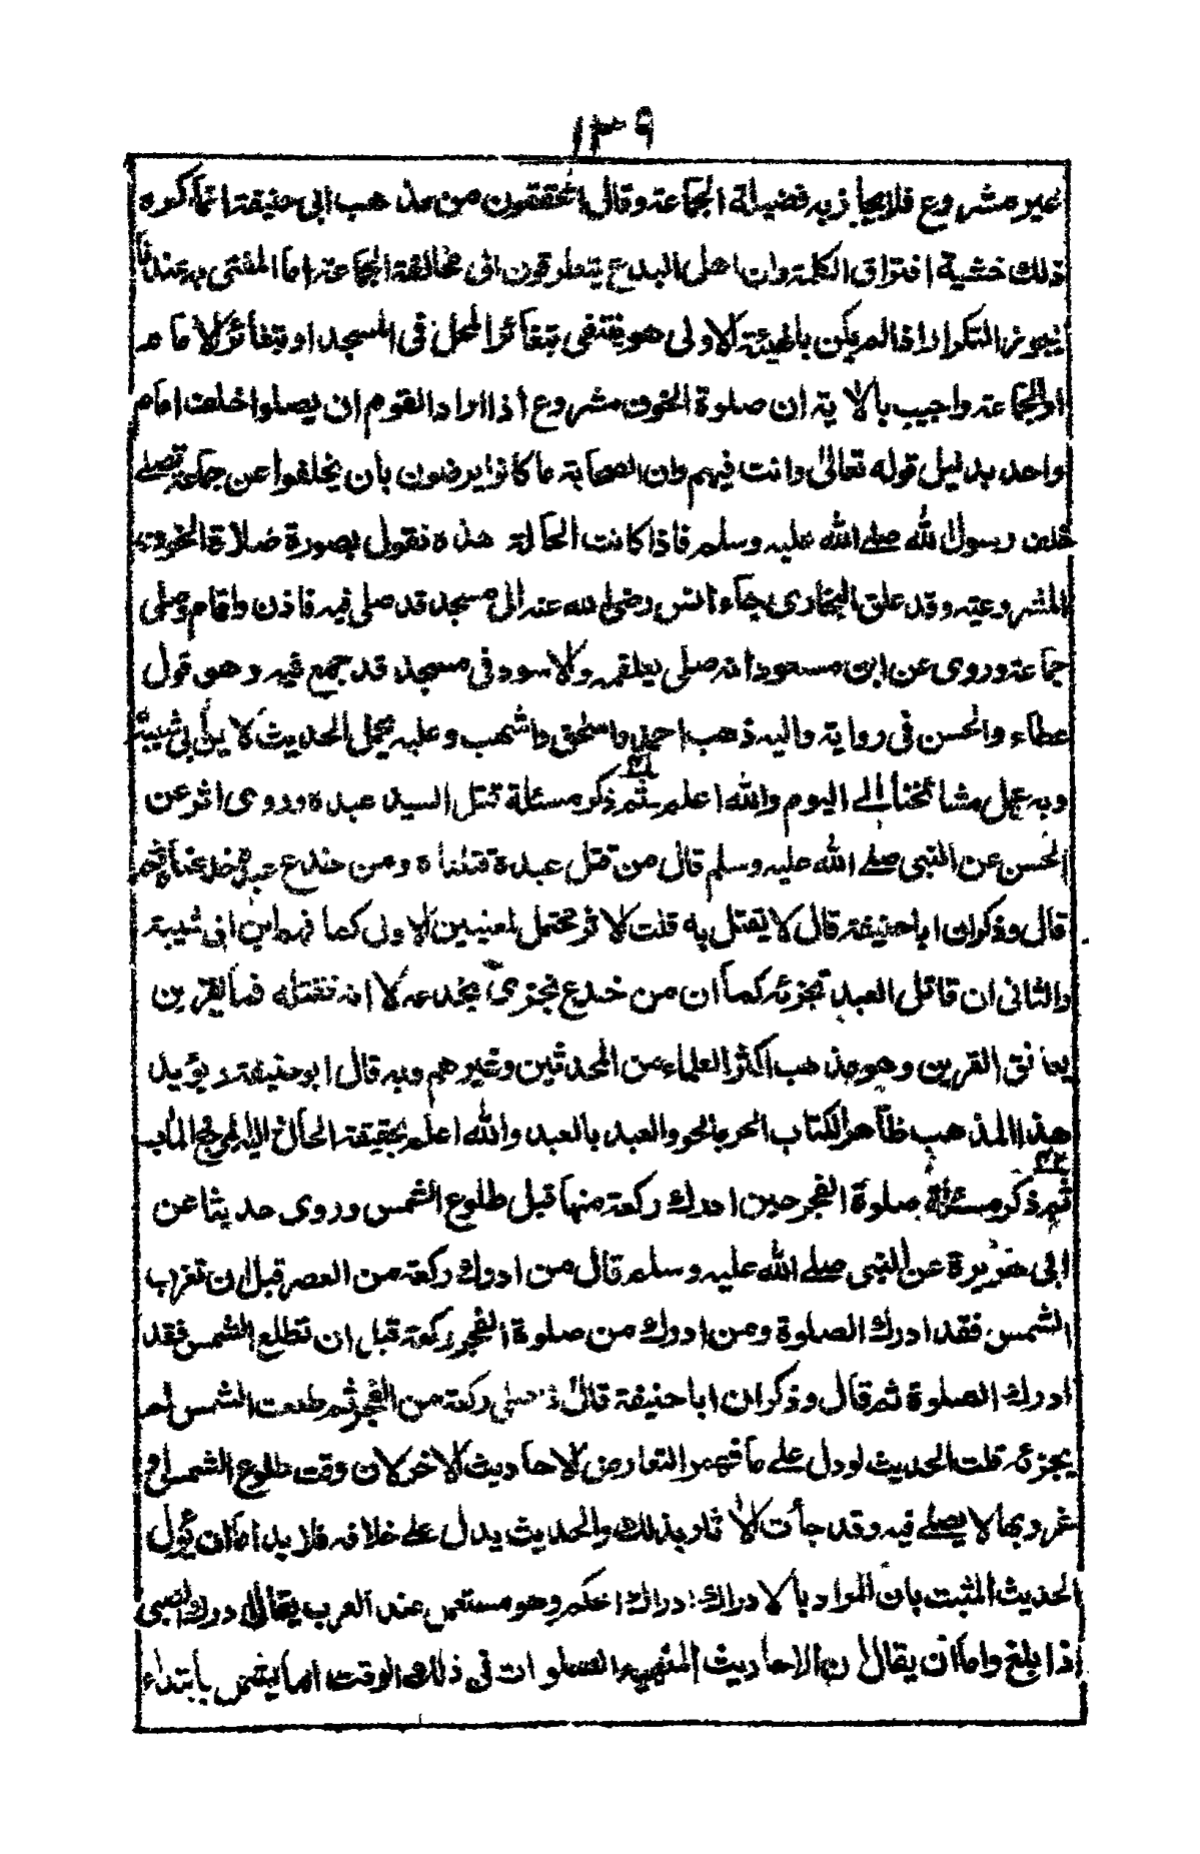 ١٣٩
غير مشروع فلايجازبه فضيلة الجماعة وقال المحققون من مذهب ابى حنيفة انما كره
ذلك خشية افتراق الكلمة وان اهل البدع يتطرقون الى مخالفة الجماعة اما المفتى به عندنا
يجوز التكرار اذا لم يكن بالهيئة الاولى هو ينتفى بتغائر المحل فى المسجد او بتغائر الامام
او الجماعة واجيب بالاية ان صلوة الخوف مشروع اذا اراد القوم ان يصلوا خلف امام
واحد بدليل قوله تعالىٰ وانت فيهم وان الصحابة ما كانوا يرضون بان يخلفوا عن جماعة تصلے
خلف رسول الله صلے الله عليه وسلم فاذا كانت الحالة هذه نقول بصورة صلاة الخوف
المشروعية وقد علق البخارى جاء انس رضى الله عنه الى مسجد قد صلى فيه فاذن واقام وصلى
جماعة وروى عن ابن مسعود انه صلى بعلقمة والاسود فى مسجد قد جمع فيه وهو قول
عطاء والحسن فى رواية واليه ذهب احمد واسحق واشهب وعليه يحمل الحديث لابن ابى شيبة
وبه عمل مشائخنا الے اليوم والله اعلم ثم ذكر مسئلة قتل السيد عبده وروى اثر عن
الحسن عن النبى صلے الله عليه وسلم قال من قتل عبدة قتلناه ومن جدع عبده جدعناه ثم
قال وذكر ان ابا حنيفة قال لا يقتل به قلت الاثر محتمل لمعنيين الاول كما فهم ابن ابى شيبة
والثانى ان قاتل العبد تجزئه كما ان من خدع يجزى بخدعه لا انه نقتله فما القرين
يعانق القرين وهو مذهب اكثر العلماء من المحدثين وغيرهم وبه قال ابو حنيفة ويؤيد
هذا المذهب ظاهر الكتاب الحر بالحر والعبد بالعبد والله اعلم بحقيقة الحال اليه المرجع المآب
ثم ذكر مسئلة صلوة الفجر حين ادرك ركعة منها قبل طلوع الشمس وروى حديثا عن
ابى هريرة عن النبى صلے الله عليه وسلم قال من ادرك ركعة من العصر قبل ان تغرب
الشمس فقد ادرك الصلوة ومن ادرك من صلوة الفجر ركعة قبل ان تطلع الشمس فقد
ادرك الصلوة ثم قال وذكر ان ابا حنيفة قال اذا صلى ركعة من الفجر ثم طلعت الشمس لم
يجزئه قلت الحديث لو دل على ما فهم التعارض الاحاديث الاخر لان وقت طلوع الشمس او
غروبها لا يصلے فيه وقد جأت الاثار بذلك والحديث يدل على خلافه فلا بد اما ان يؤل
الحديث المثبت بان المراد بالادراك ادراك الحكم وهو مستعمل عند العرب يقال ادرك الصبى
اذا بلغ واما ان يقال ان الاحاديث المنهية الصلوات فى ذلك الوقت انما يختص بابتداء